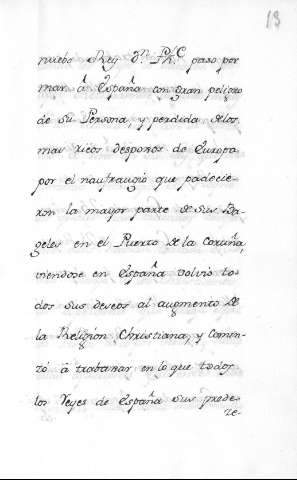 13
nuebo Rey Dn. Phe. paso por
mar â España con gran peligro
de su Persona y perdida de los
mas ricos desposos de Europa
por el naufraugio que padecie-
ron la mayor parte de sus Ba-
geles en el Puerto de la Coruña,
viendose en España volvio to-
dos sus deseos al augmento de
la Religion Christiana, y comin-
zó â trabanar en lo que todos
los Reyes de España sus prede-
ze-